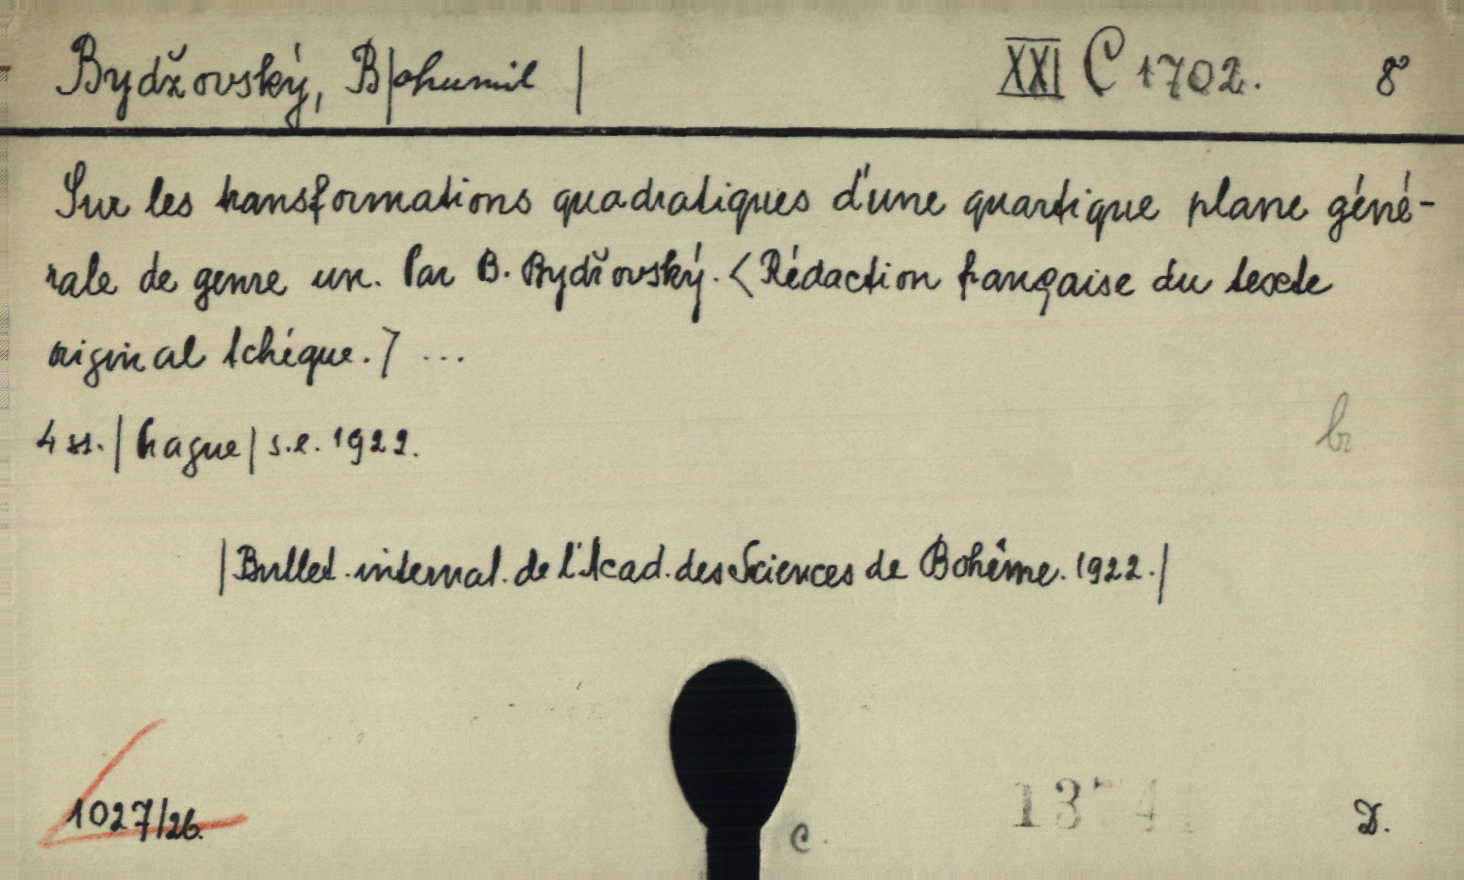 Bydžovský, B|ohumil | XXI C 1702. 8°
Sur les transformations quadratiques d'une quartique plane géné-
rale de genre un. Par B. Bydžovský. <Rédaction française du texte
original tchéque.> ...
4 ss. | Prague | s.e. 1922. br
|Bullet. internat. de l'Acad. des Sciences de Bohême. 1922.|
1027/26.
c. D.